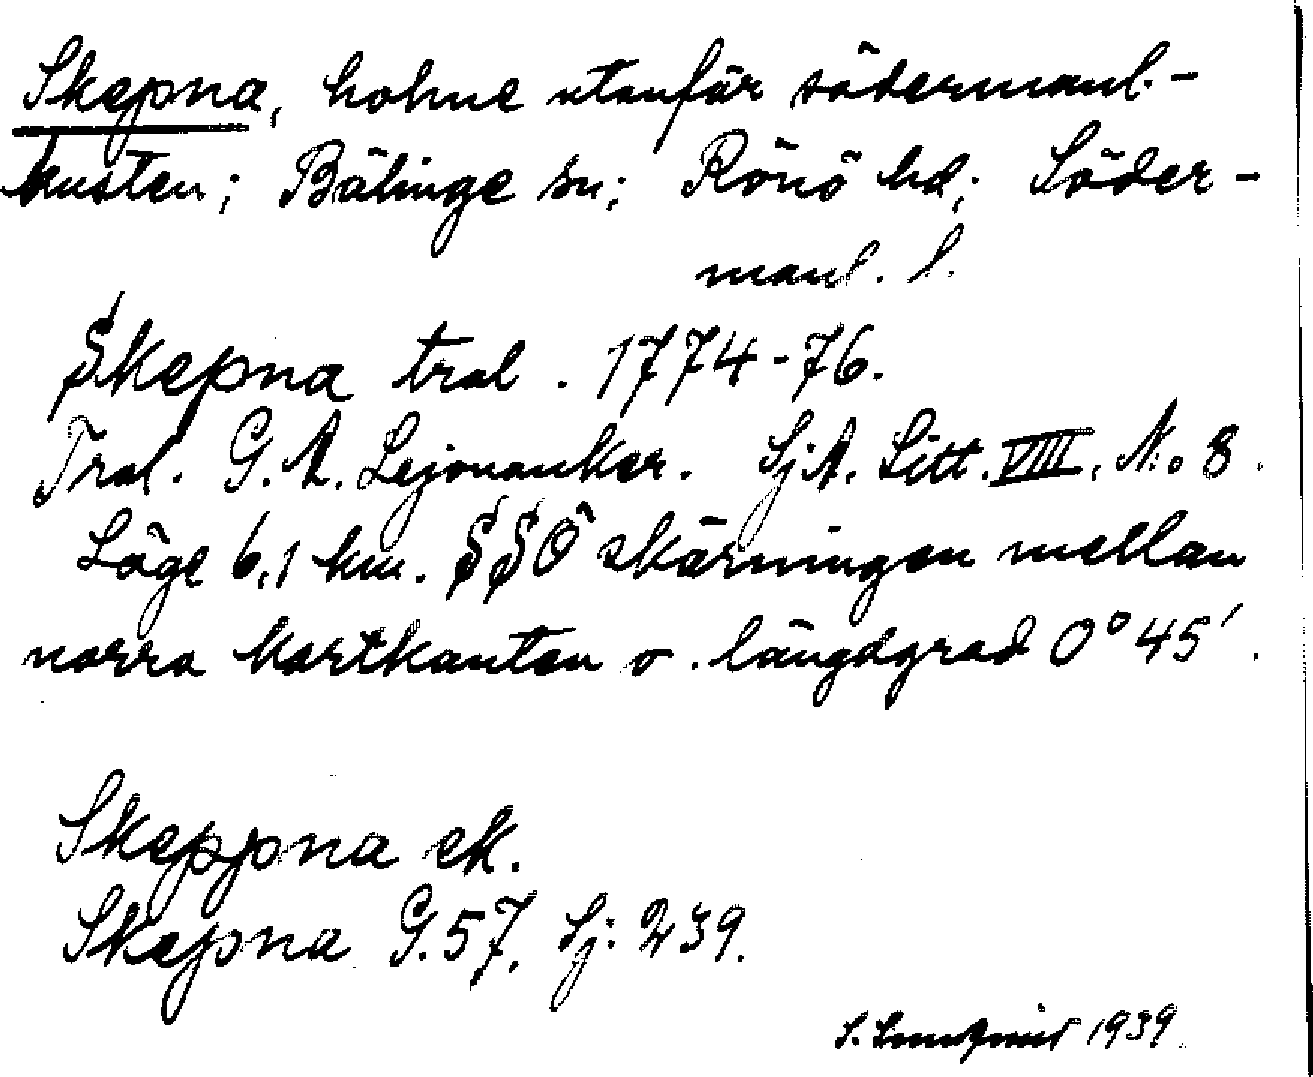 Skepna, holme utanför södermanl.-
kusten; Bälinge sn; Rönö hd; Söder-
manl. l.
Skepna tral. 1774-76.
Tral. G. A. Lejonanker. Sj.A. Litt. VIIII. No 8.
Läge 6,1 km. SSÖ skärningen mellan
norra kartkanten o. längdgrad 0° 45'.
Skeppna ek.
Skepna G. 57. Sj: 239.
S. 1939.